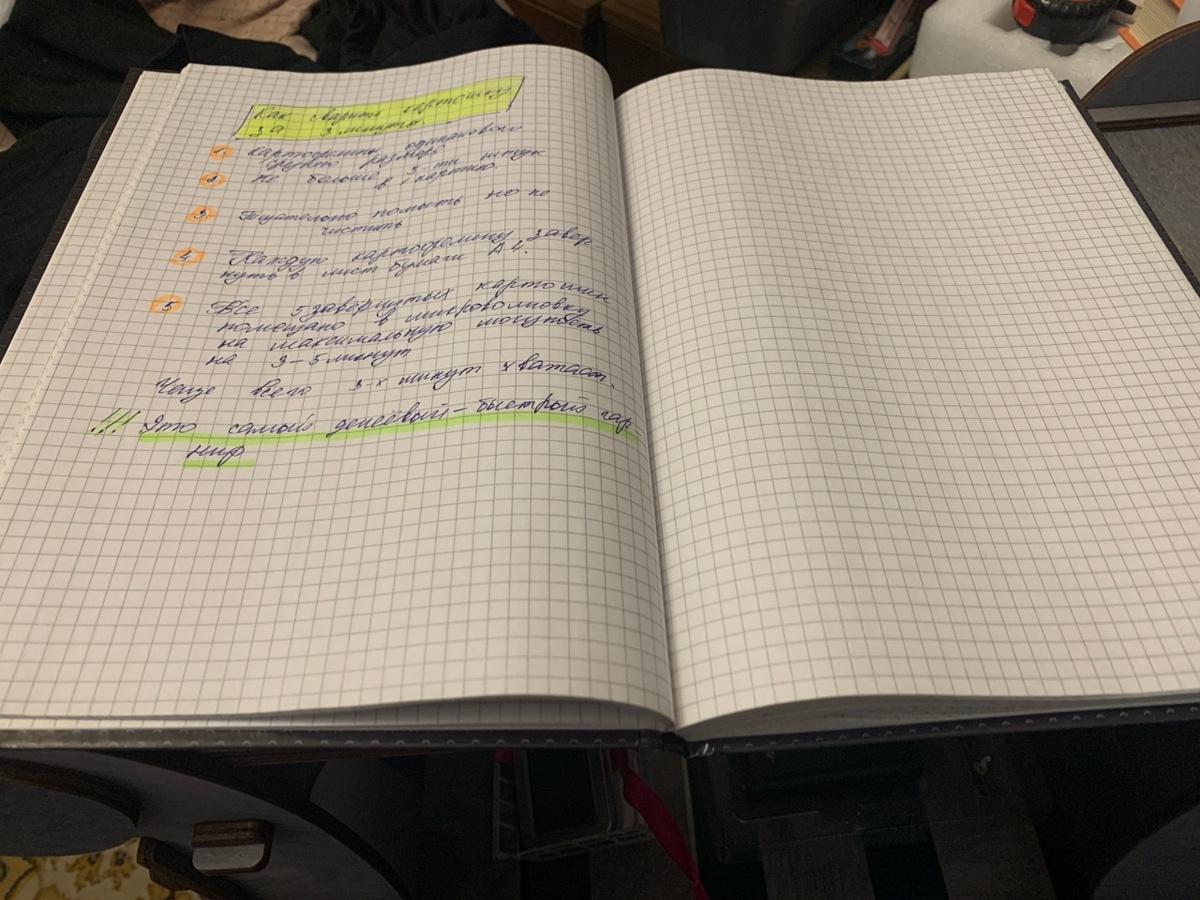 Как сварить картошку
за 3 минуты.
1. Картофелины одинакового
среднего размера
2. не больше 5-ти штук
в 1 партию.
3. Тщательно помыть но не
чистить
4. Каждую картофелину завер
нуть в лист бумаги А4.
5 Все 5 завёрнутых картошин
помещаю в микроволновку
на максимальную мощность
на 3-5 минут
Чаще всего 3-х минут хватает.
!!! Это самый дешевый - быстрый гар
нир